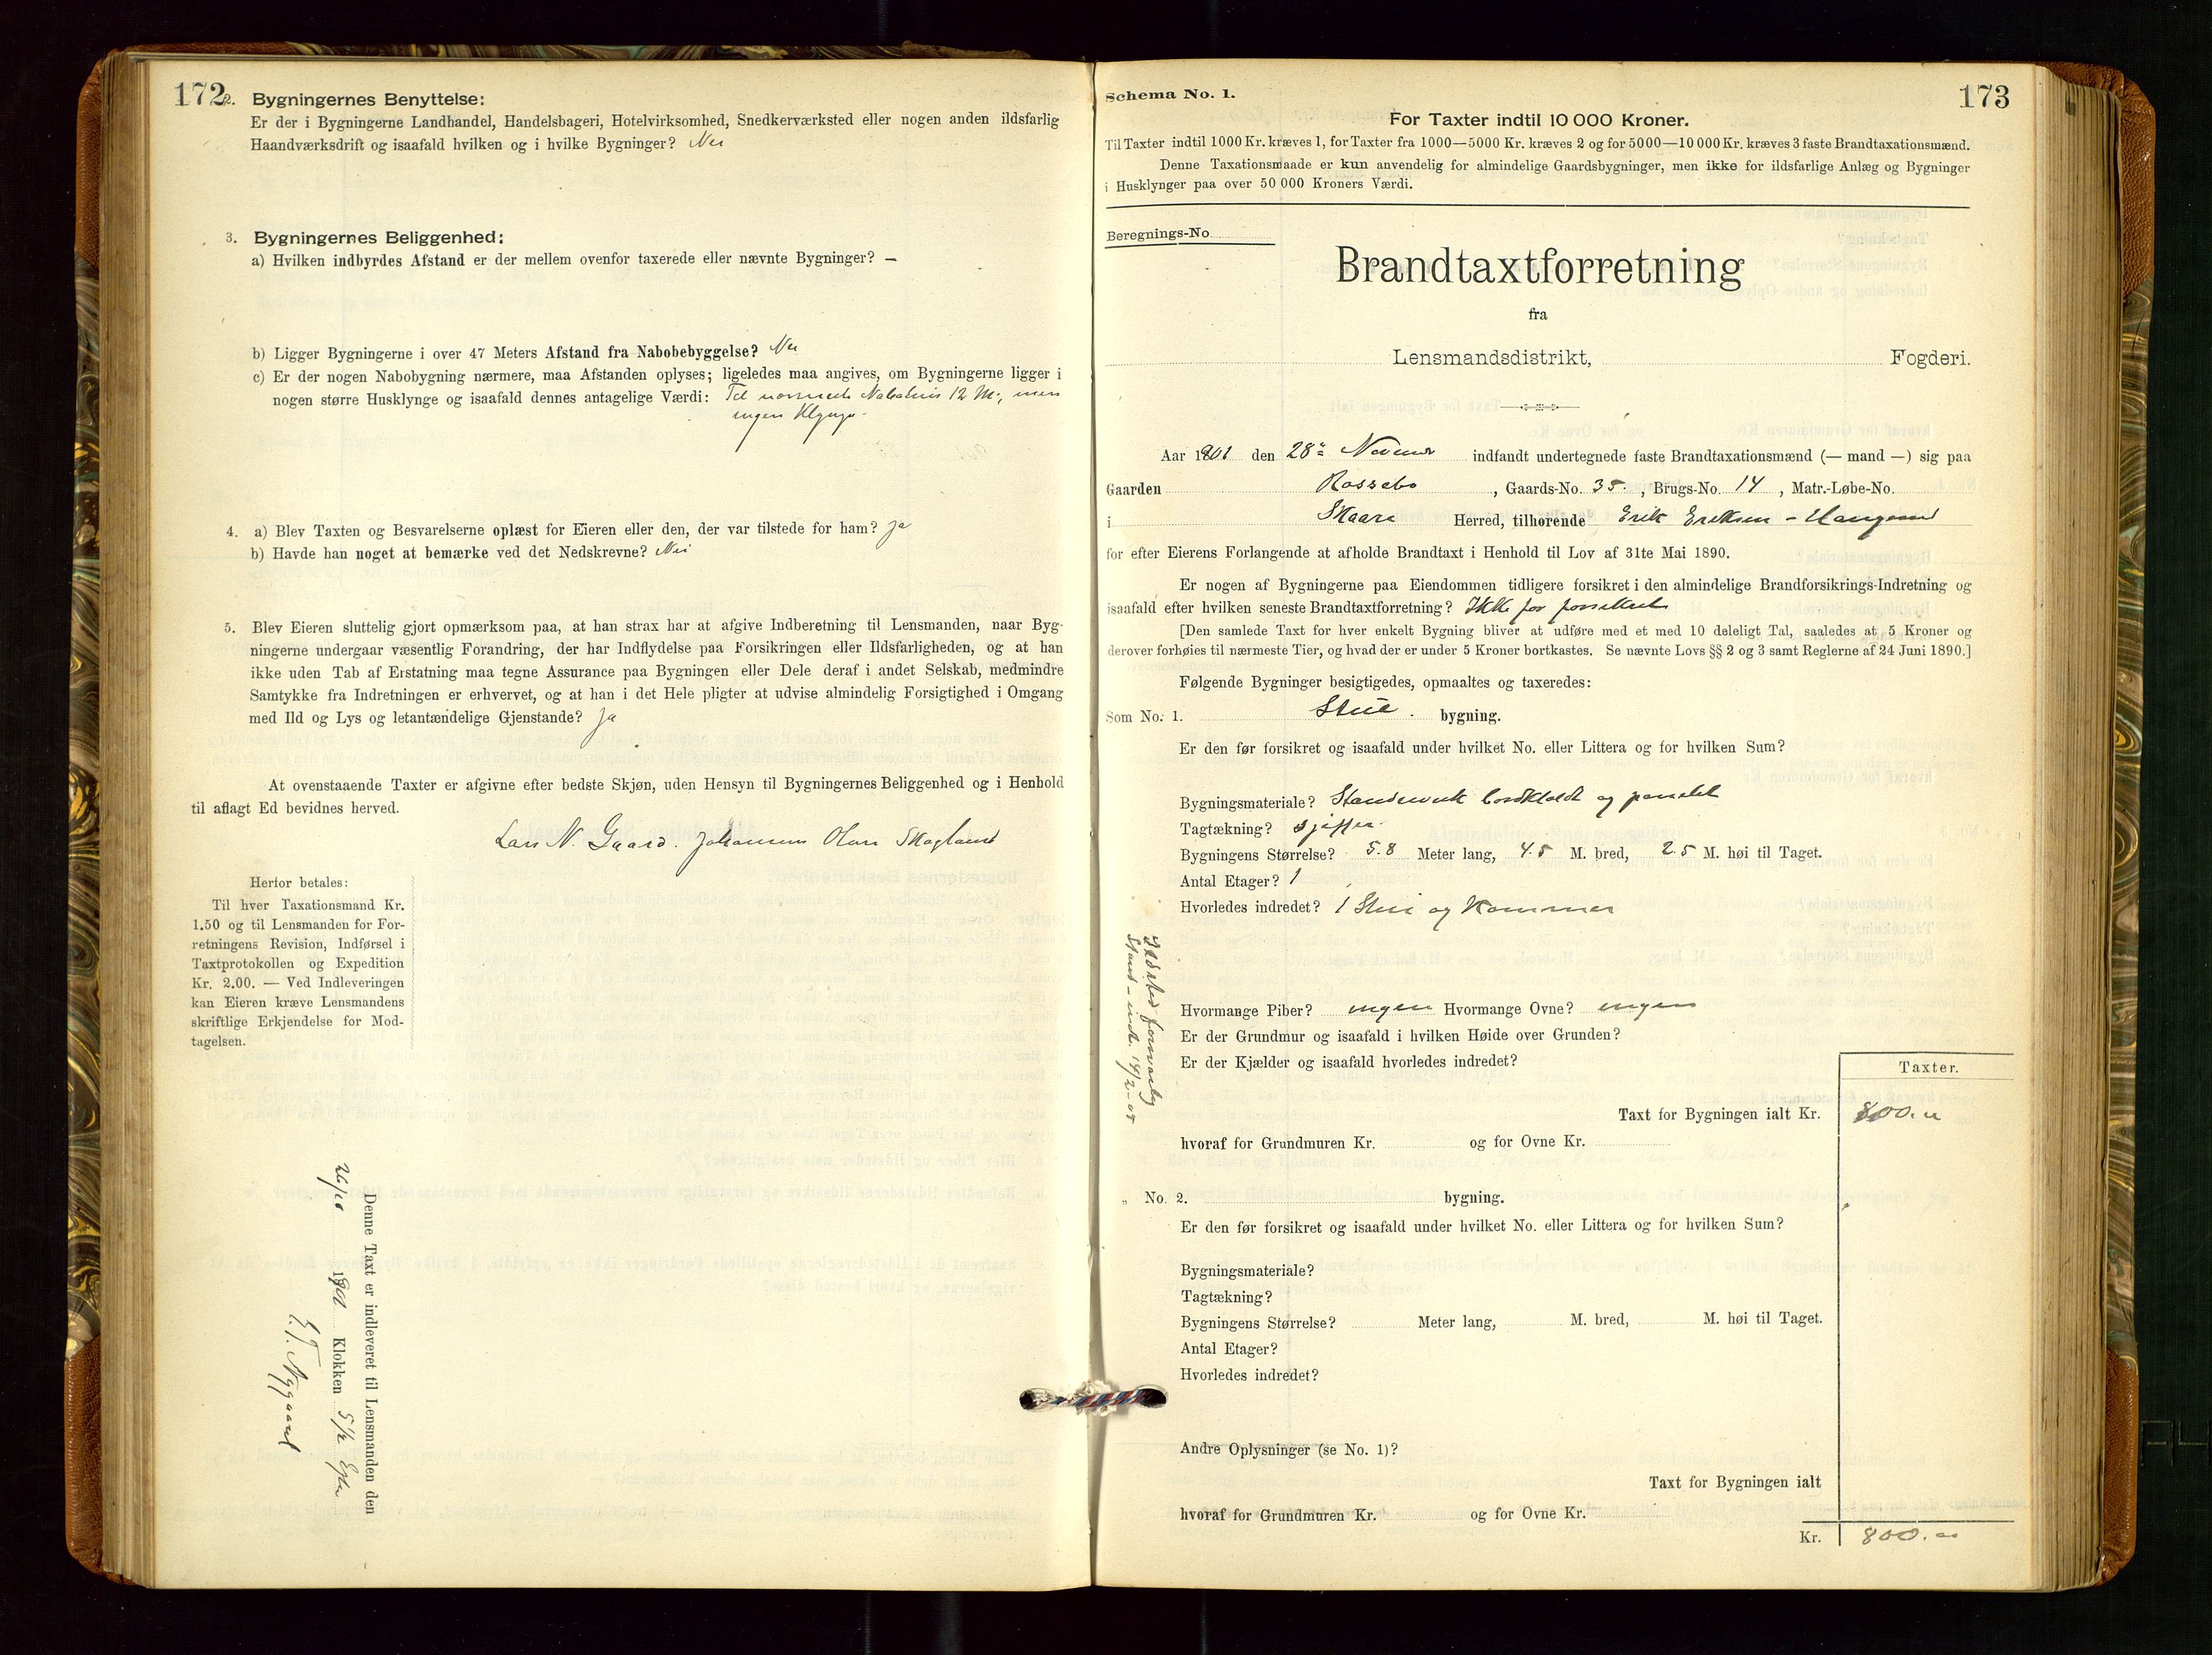 172
2. Bygningernes Benyttelse:
Er der i Bygningerne Landhandel, Handelsbageri, Hotelvirksomhed, Snedkerværksted eller nogen anden ildsfarlig
Haandværksdrift og isaafald hvilken og i hvilke Bygninger? Nei
3. Bygningernes Beliggenhed:
a) Hvilken indbyrdes Afstand er der mellem ovenfor taxerede eller nævnte Bygninger? —
b) Ligger Bygningerne i over 47 Meters Afstand fra Nabobebyggelse? Nei
c) Er der nogen Nabobygning nærmere, maa Afstanden oplyses; ligeledes maa angives, om Bygningerne ligger i
nogen større Husklynge og isaafald dennes antagelige Værdi: Til nærmeste Nabohus 12 M; men
ingen Klynge.
4. a) Blev Taxten og Besvarelserne oplæst for Eieren eller den, der var tilstede for ham? Ja
b) Havde han noget at bemærke ved det Nedskrevne? Nei
5. Blev Eieren sluttelig gjort opmærksom paa, at han strax har at afgive Indberetning til Lensmanden, naar Byg-
ningerne undergaar væsentlig Forandring, der har Indflydelse paa Forsikringen eller Ildsfarligheden, og at han
ikke uden Tab af Erstatning maa tegne Assurance paa Bygningen eller Dele deraf i andet Selskab, medmindre
Samtykke fra Indretningen er erhvervet, og at han i det Hele pligter at udvise almindelig Forsigtighed i Omgang
med Ild og Lys og letantændelige Gjenstande? Ja
At ovenstaaende Taxter er afgivne efter bedste Skjøn, uden Hensyn til Bygningernes Beliggenhed og i Henhold
til aflagt Ed bevidnes herved.
Lars N. Gaard. Johannes Olsen Skogland
Herfor betales:
Til hver Taxationsmand Kr.
1.50 og til Lensmanden for For-
retningens Revision, Indførsel i
Taxtprotokollen og Expedition
Kr. 2.00. — Ved Indleveringen
kan Eieren kræve Lensmandens
skriftlige Erkjendelse for Mod-
tagelsen.
Denne Taxt er indleveret til Lensmanden den
1901 Klokken 5 1/2
Nygaard
173
Schema No. 1.
For Taxter indtil 10 000 Kroner.
Til Taxter indtil 1000 Kr. kræves 1, for Taxter fra 1000—5000 Kr. kræves 2 og for 5000—10 000 Kr. kræves 3 faste Brandtaxationsmænd.
Denne Taxationsmaade er kun anvendelig for almindelige Gaardsbygninger, men ikke for ildsfarlige Anlæg og Bygninger
i Husklynger paa over 50 000 Kroners Værdi.
Beregnings-No.
Brandtaxtforretning
fra
Lensmandsdistrikt, Fogderi.
Aar 1901 den 28de indfandt undertegnede faste Brandtaxationsmænd (— mand —) sig paa
Gaarden Rossebø, Gaards-No. 35, Brugs-No. 14, Matr.-Løbe-No.
i Skaare Herred, tilhørende Erik Eriksen - Haugesund
for efter Eierens Forlangende at afholde Brandtaxt i Henhold til Lov af 31te Mai 1890.
Er nogen af Bygningerne paa Eiendommen tidligere forsikret i den almindelige Brandforsikrings-Indretning og
isaafald efter hvilken seneste Brandtaxtforretning? Ikke før forsikret
[Den samlede Taxt for hver enkelt Bygning bliver at udføre med et med 10 deleligt Tal, saaledes at 5 Kroner og
derover forhøies til nærmeste Tier, og hvad der er under 5 Kroner bortkastes. Se nævnte Lovs §§ 2 og 3 samt Reglerne af 24 Juni 1890.]
Følgende Bygninger besigtigedes, opmaaltes og taxeredes:
Som No. 1. Stue. bygning.
Er den før forsikret og isaafald under hvilket No. eller Littera og for hvilken Sum?
Bygningsmateriale? Standerverk bordklædt og panelet
Tagtækning? Skiffer.
Bygningens Størrelse? 5.8 Meter lang, 4.5 M. bred, 2.5 M. høi til Taget.
Antal Etager? 1
Hvorledes indredet? 1 Stue og Kammer
Hvormange Piber? ingen Hvormange Ovne? ingen
Er der Grundmur og isaafald i hvilken Høide over Grunden?
Er der Kjælder og isaafald hvorledes indredet?
Ildsted forsvarlig
Stand - indt. 14/2-05
Taxter.
Taxt for Bygningen ialt Kr. 800.00
hvoraf for Grundmuren Kr. og for Ovne Kr.
„ No. 2. bygning.
Er den før forsikret og isaafald under hvilket No. eller Littera og for hvilken Sum?
Bygningsmateriale?
Tagtækning?
Bygningens Størrelse? Meter lang, M. bred, M. høi til Taget.
Antal Etager?
Hvorledes indredet?
Andre Oplysninger (se No. 1)?
Taxt for Bygningen ialt
hvoraf for Grundmuren Kr. og for Ovne Kr.
Kr. 800.00